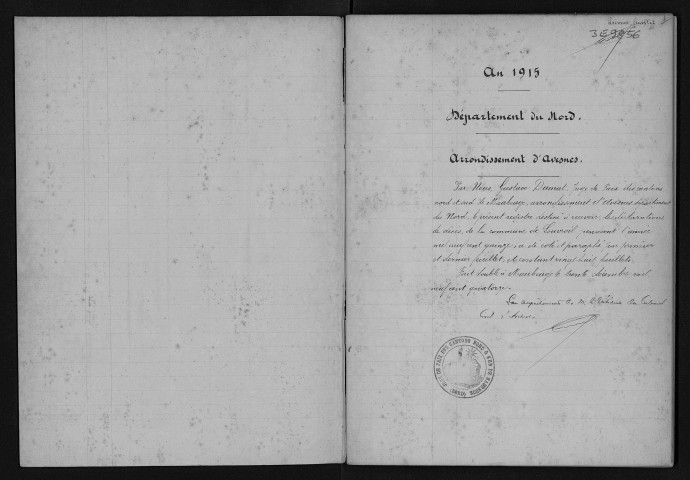 premier feuillet
An 1915
Département du Nord.
Arrondissement d'Avesnes.
Par Nous, Gustave Dumat, Juge de Paix des cantons
nord et sud de Maubeuge, arrondissement d'Avesnes département
du Nord, le présent registre destiné à recevoir les déclarations
de décès, de la commune de Louvroil, pendant l'année
mil neuf cent quinze a été coté et paraphé sur premier
et dernier feuillet, et contient vingt huit feuillets.
Fait double à Maubeuge le trente décembre mil
neuf cent quatorze.
Par empêchement de M. le Président du Tribunal
Civil d'Avesnes.